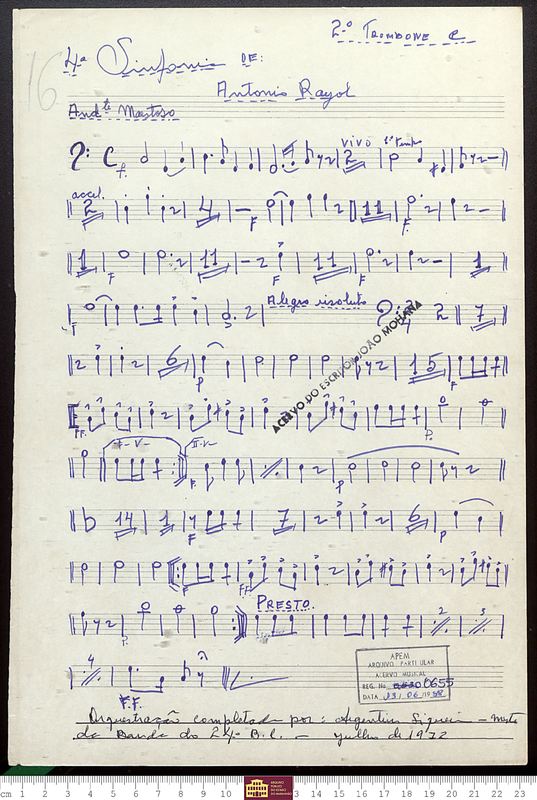 2º Trombone C
16
4ª Sinfonia DE:
Antonio Rayol
Andte Maestoso
f. vivo 1º Tempo 2
accel.
2 4 F 11 F.
1 F 11 F 11 F 1
Alegro risoluto 2 7
6 P 15 F
FF. P.
I-V- II-V- F. P
14 1 F 7 6 P
FF
PRESTO.
P. 2 3
4 F.F.
ACERVO DO ESCRITOR JOÃO MOHANA
APEM
ARQUIVO PARTICULAR
ACERVO MUSICAL
REG. No. 0655
DATA 03/06/1988
Orquestração completada por: Argentins Siqueira – Mestre
da Banda do 24º B.C. – Julho de 1972
cm 1 2 3 4 5 6 7 8 9 10 11 12 13 14 15 16 17 18 19 20 21 22 23
ARQUIVO PÚBLICO DO ESTADO DO MARANHÃO